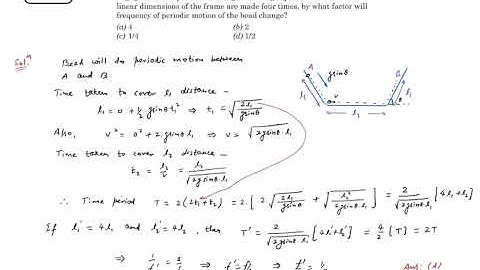 linear dimensions of the frame are made four times, by what factor will
frequency of periodic motion of the bead change?
(a) 4 (b) 2
(c) 1/4 (d) 1/2
Sol.ⁿ Bead will do periodic motion between
A and B.
Time taken to cover l₁ distance –
l₁ = 0 + ½ gsinθ t₁² ⇒ t₁ = √(2l₁/gsinθ)
Also, v² = 0² + 2.gsinθ.l₁ ⇒ v = √(2gsinθ.l₁)
Time taken to cover l₂ distance –
t₂ = l₂/v = l₂/√(2gsinθ.l₁)
∴ Time period T = 2(2t₁+t₂) = 2.[2√(2l₁/gsinθ) + √(l₂²/2gsinθ.l₁)] = 2/√(2gsinθl₁) [4l₁+l₂]
If l₁' = 4l₁ and l₂' = 4l₂, then T' = 2/√(2gsinθl₁') [4l₁'+l₂'] = 4/2 [T] = 2T
A gsinθ B
l₁ v θ l₁
l₂
Ans: (d)